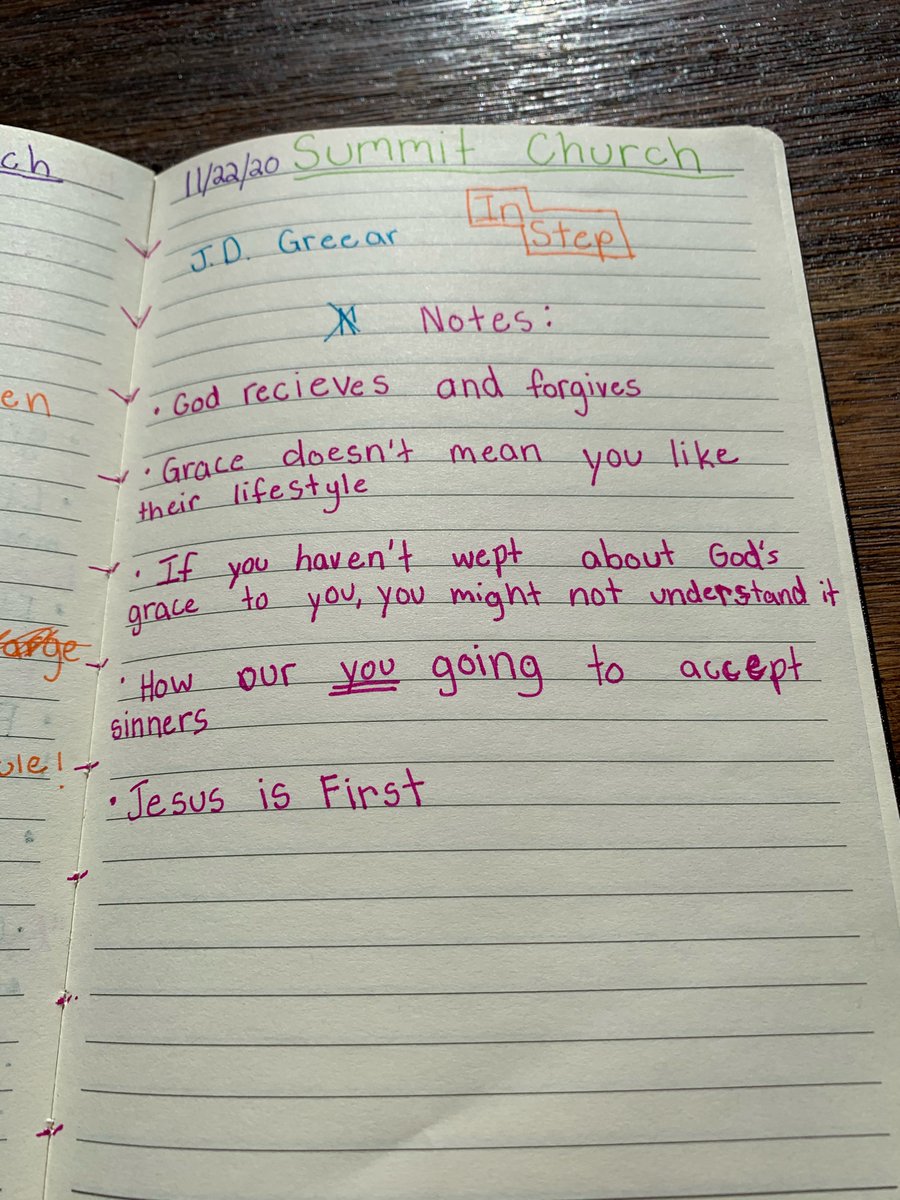 ch
11/22/20 Summit Church
J.D. Greear
In
Step
Notes:
• God recieves and forgives
• Grace doesn't mean you like
their lifestyle
• If you haven't wept about God's
grace to you, you might not understand it
• How our you going to accept
sinners
• Jesus is First
en
ge
ole!